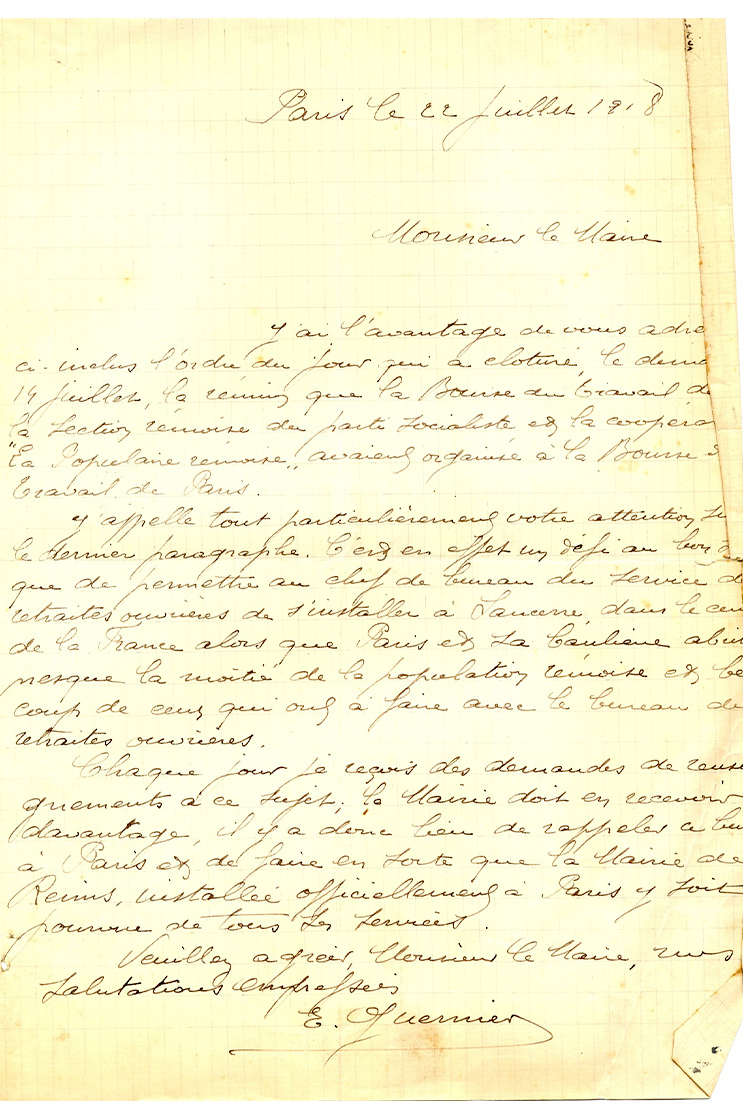 Paris le 22 Juillet 1918
Monsieur le Maire
J'ai l'avantage de vous adre
ci-inclus l'ordre du jour qui a cloturé, le dima
14 Juillet, la réunion que la Bourse du Travail de
la Section rémoise du parti Socialiste et la coopéra
"La Populaire rémoise", avaient organisée à la Bourse d
Travail de Paris.
J'appelle tout particulièrement votre attention su
le dernier paragraphe. C'est en effet un défi au bon
que de permettre au chef de bureau du Service d
retraites ouvrières de s'installer à Sancerre, dans le cen
de la France alors que Paris et sa banlieue abri
presque la moitié de la population rémoise et be
coup de ceux qui ont à faire avec le bureau de
retraites ouvrières.
Chaque jour je reçois des demandes de rensei
gnements à ce sujet; la Mairie doit en recevoir
davantage, il y a donc lieu de rappeler ce bu
à Paris et de faire en sorte que la Mairie de
Reims, installée officiellement à Paris y soit
pourvue de tous ses services.
Veuillez agréer, Monsieur le Maire, mes
salutations empressées
E. Guernier